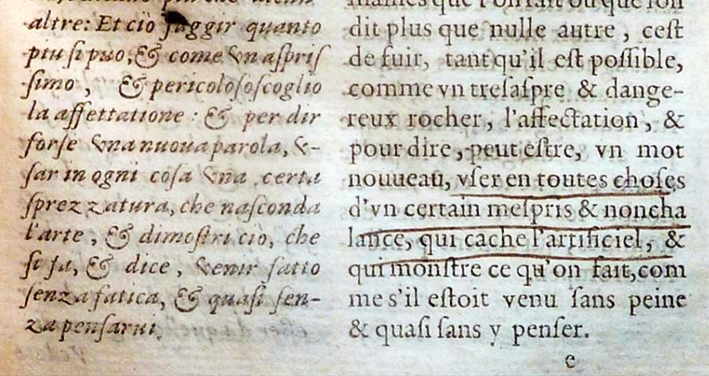 altre: Et cio fuggir quanto
piu si puo, & come vn aspris
simo, & pericoloso scoglio
la affettatione: & per dir
forse vna nuoua parola, v-
sar in ogni cosa vna certa
sprezzatura, che nasconda
l'arte, & dimostri cio, che
si fa, & dice, venir fatto
senza fatica, & quasi sen-
za pensarui
dit plus que nulle autre, cest
de fuir, tant qu'il est possible,
comme vn tresaspre & dange-
reux rocher, l'affectation, &
pour dire, peut estre, vn mot
nouueau, vser en toutes choses
d'vn certain mespris & noncha
lance, qui cache l'artificiel, &
qui monstre ce qu'on fait, com
me s'il estoit venu sans peine
& quasi sans y penser.
e